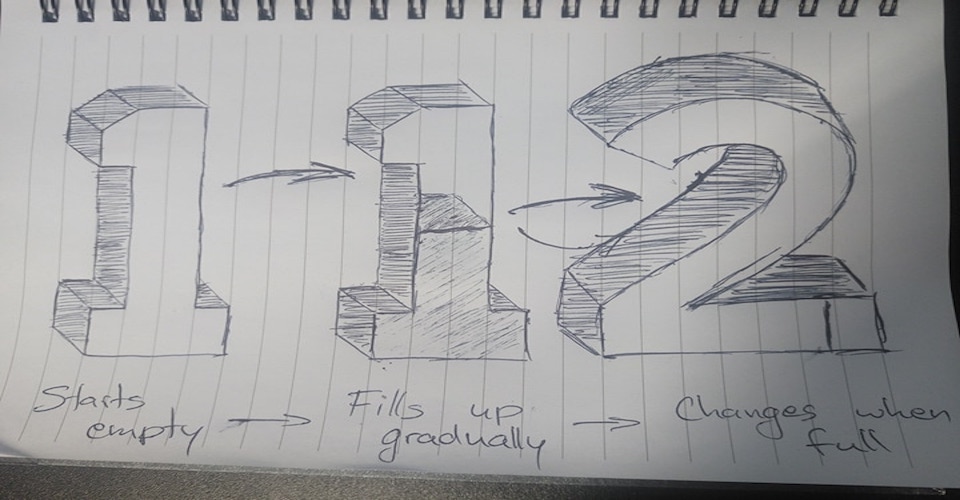 1 → 1 → 2
Starts
empty → Fills up
gradually → Changes when
full